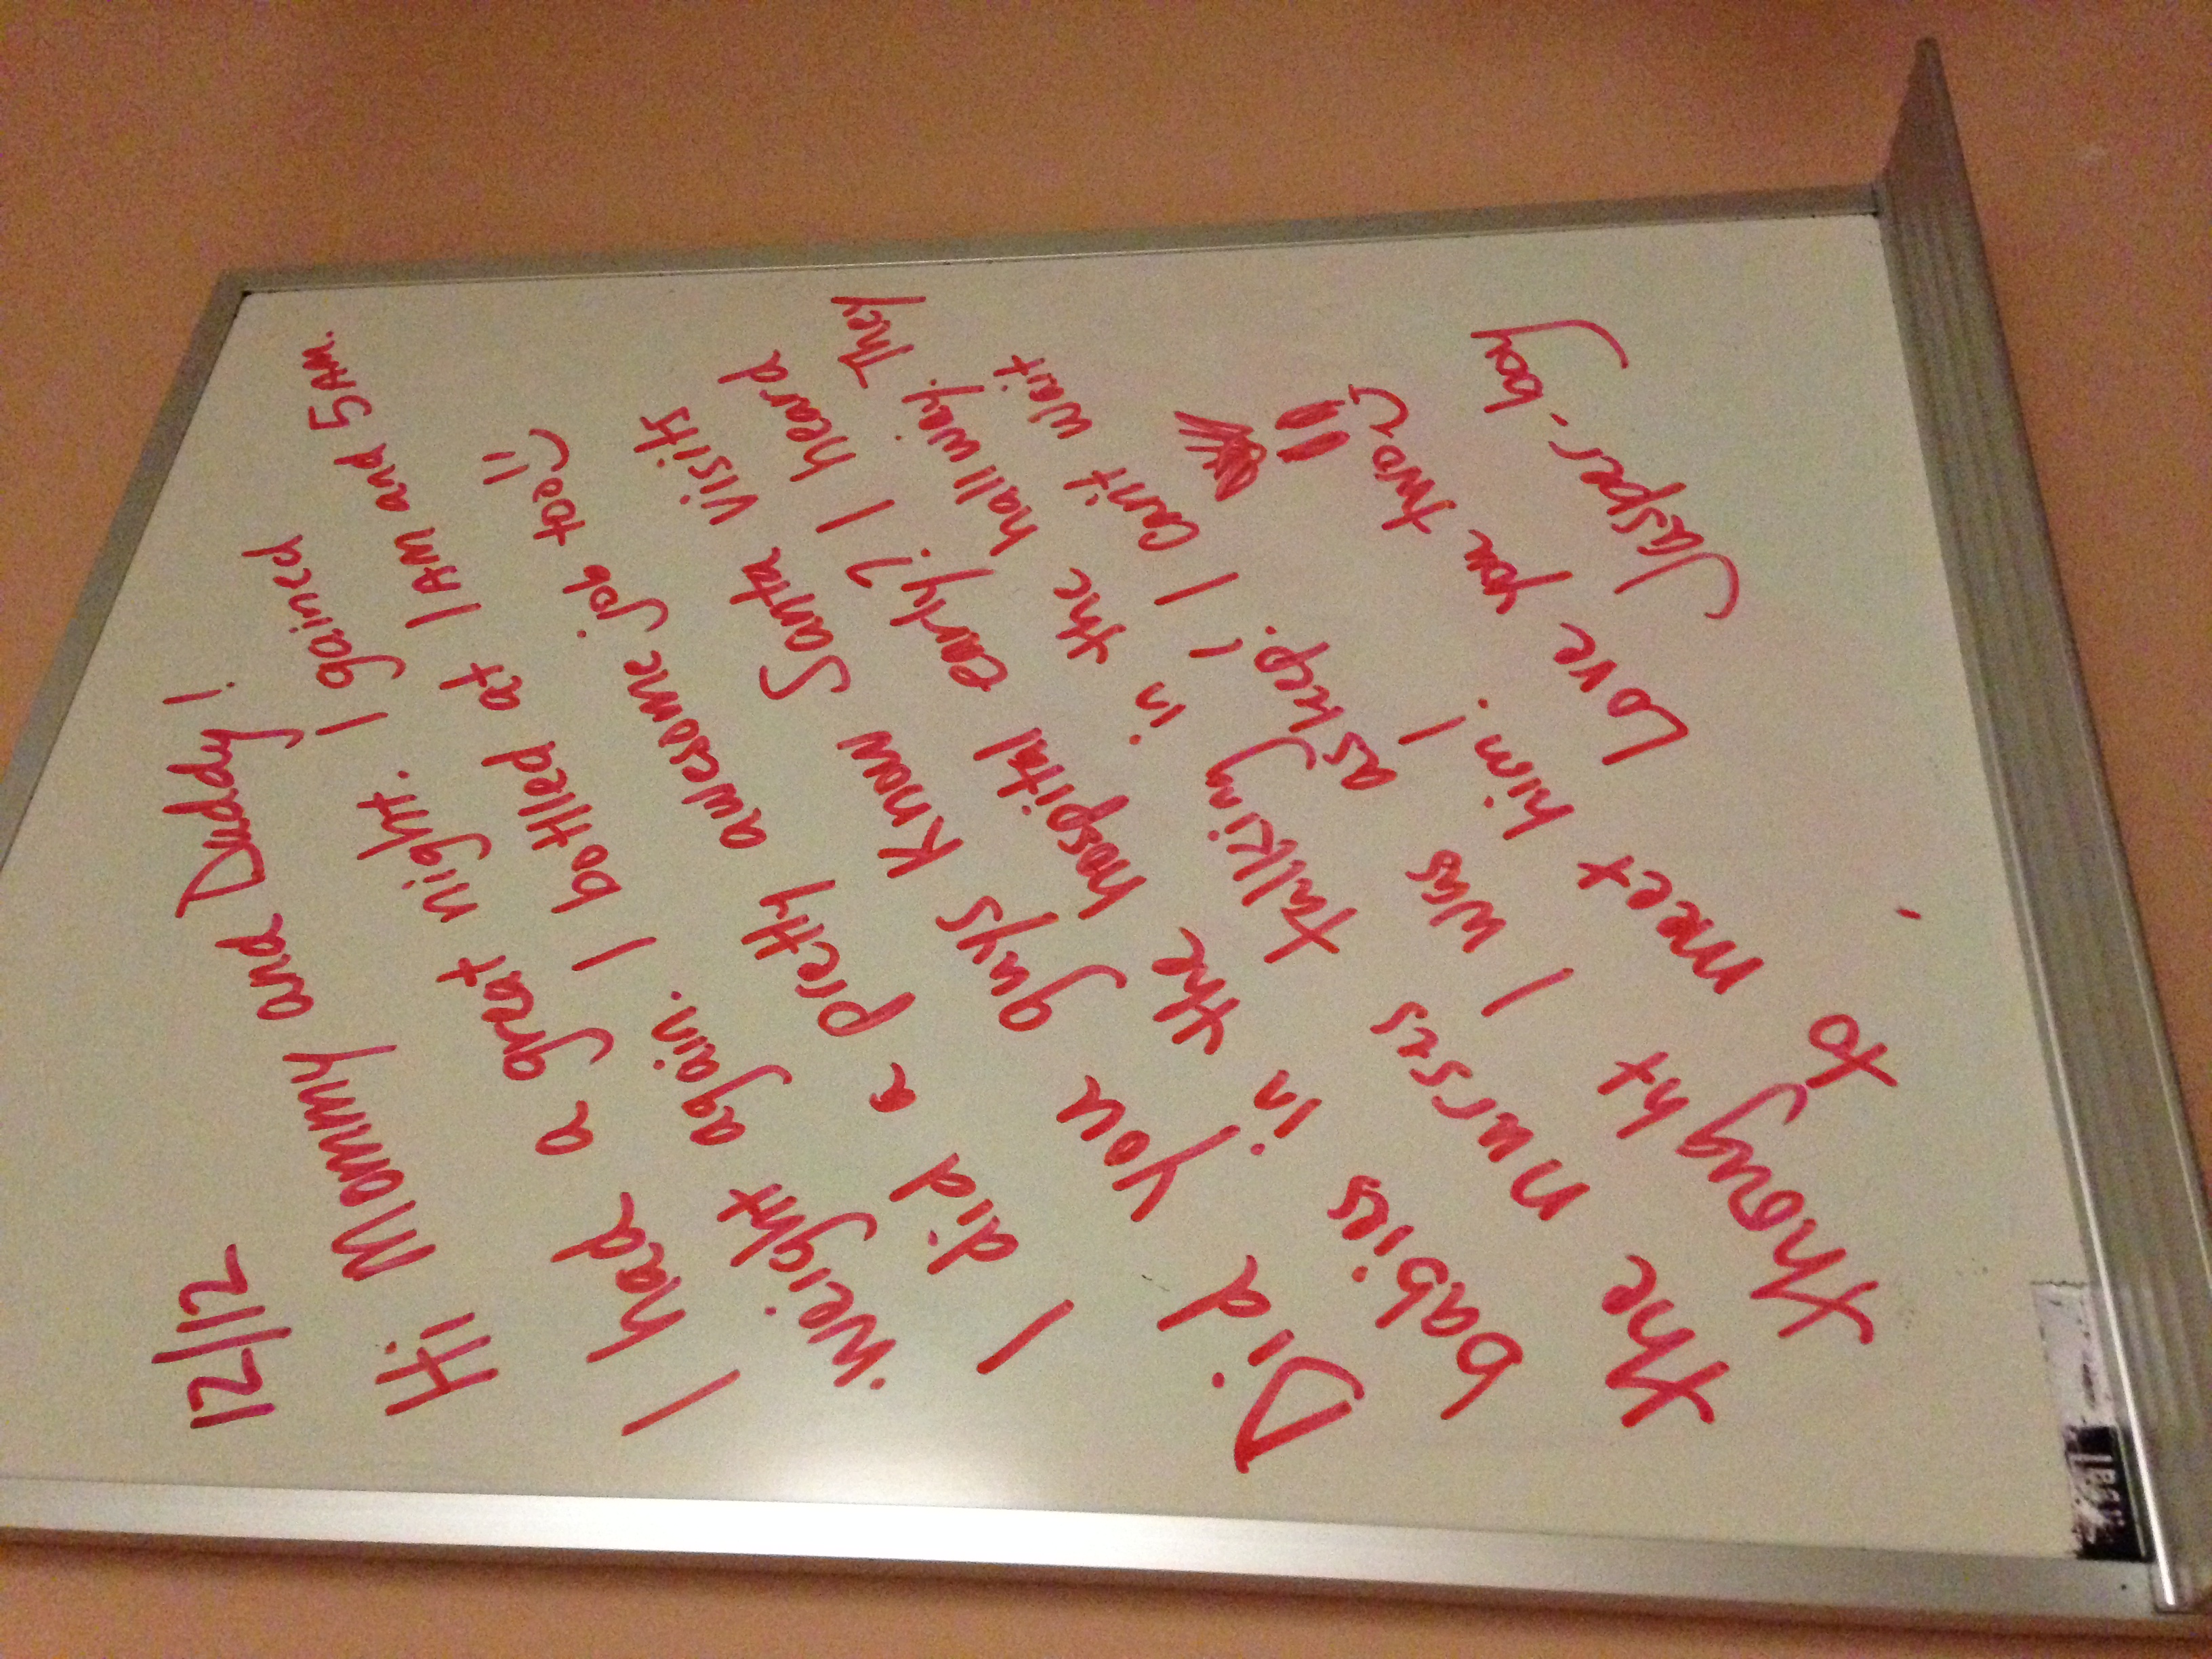 12/12
Hi Mommy and Daddy!
I had a great night. I gained
weight again. I bottled at 1AM and 5AM.
I did a pretty awesome job too!!
Did you guys know Santa visits
babies in the hospital early?! I heard
the nurses talking in the hallway. They
thought I was asleep! I can't wait
to meet him!
Love you two
Jasper-boy